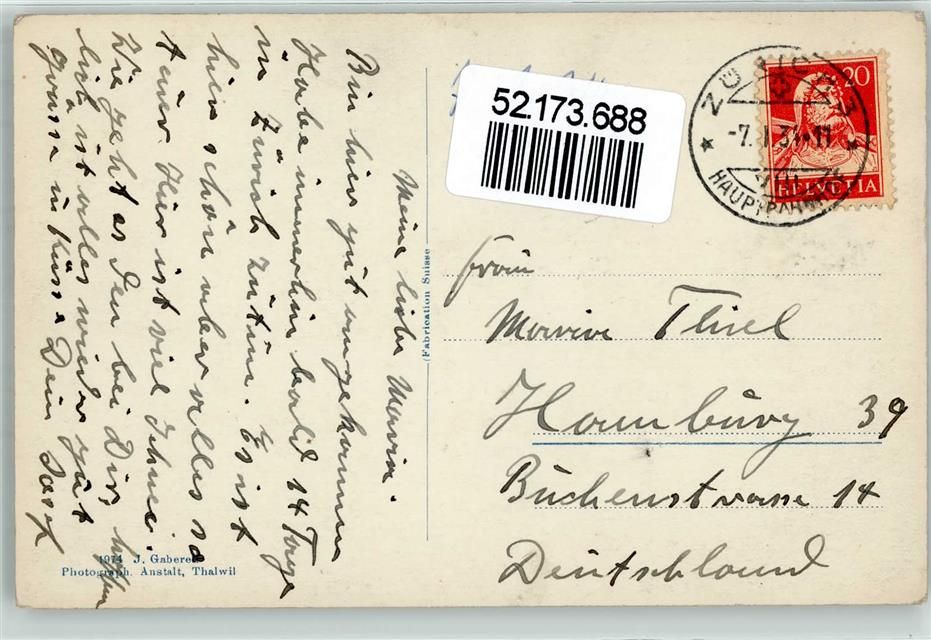 Meine liebe Marie.
Bin hier gut angekommen
Habe immerhin bald 14 Tage
in Zürich zu tun. Es ist
hier schön aber alles so
teuer. Hier ist viel Schnee.
Wie geht es Den bei Dir, hoffen
lich ist alles wieder gut
Grüsse u Küsse Dein
1974 J. Gaberell
Photograph. Anstalt, Thalwil
(Fabrication Suisse
52.173.688
ZÜRICH
-7.I.31-11
HAUPTBAHNHOF
20
HELVETIA
Frau
Marie Thiel
Hamburg 39
Buchenstrasse 14
Deutschland